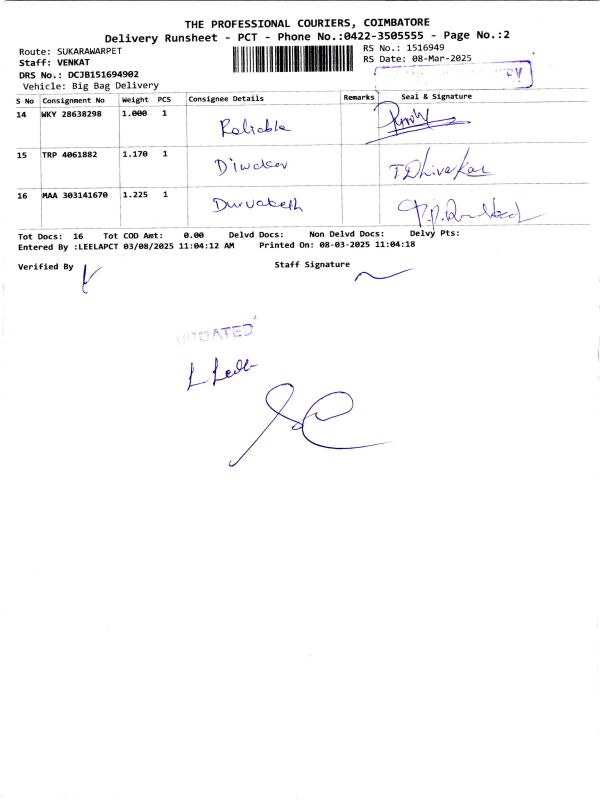 THE PROFESSIONAL COURIERS, COIMBATORE
Delivery Runsheet - PCT - Phone No.:0422-3505555 - Page No.:2
Route: SUKARAWARPET
Staff: VENKAT
DRS No.: DCJB151694902
Vehicle: Big Bag Delivery
RS No.: 1516949
RS Date: 08-Mar-2025
S No Consignment No Weight PCS Consignee Details Remarks Seal & Signature
14 WKY 28638298 1.000 1 Reliable
15 TRP 4061882 1.170 1 Diwaker T Dhivarkar
16 MAA 303141670 1.225 1
Tot Docs: 16 Tot COD Amt: 0.00 Delvd Docs: Non Delvd Docs: Delvy Pts:
Entered By :LEELAPCT 03/08/2025 11:04:12 AM Printed On: 08-03-2025 11:04:18
Verified By Staff Signature
UPDATED